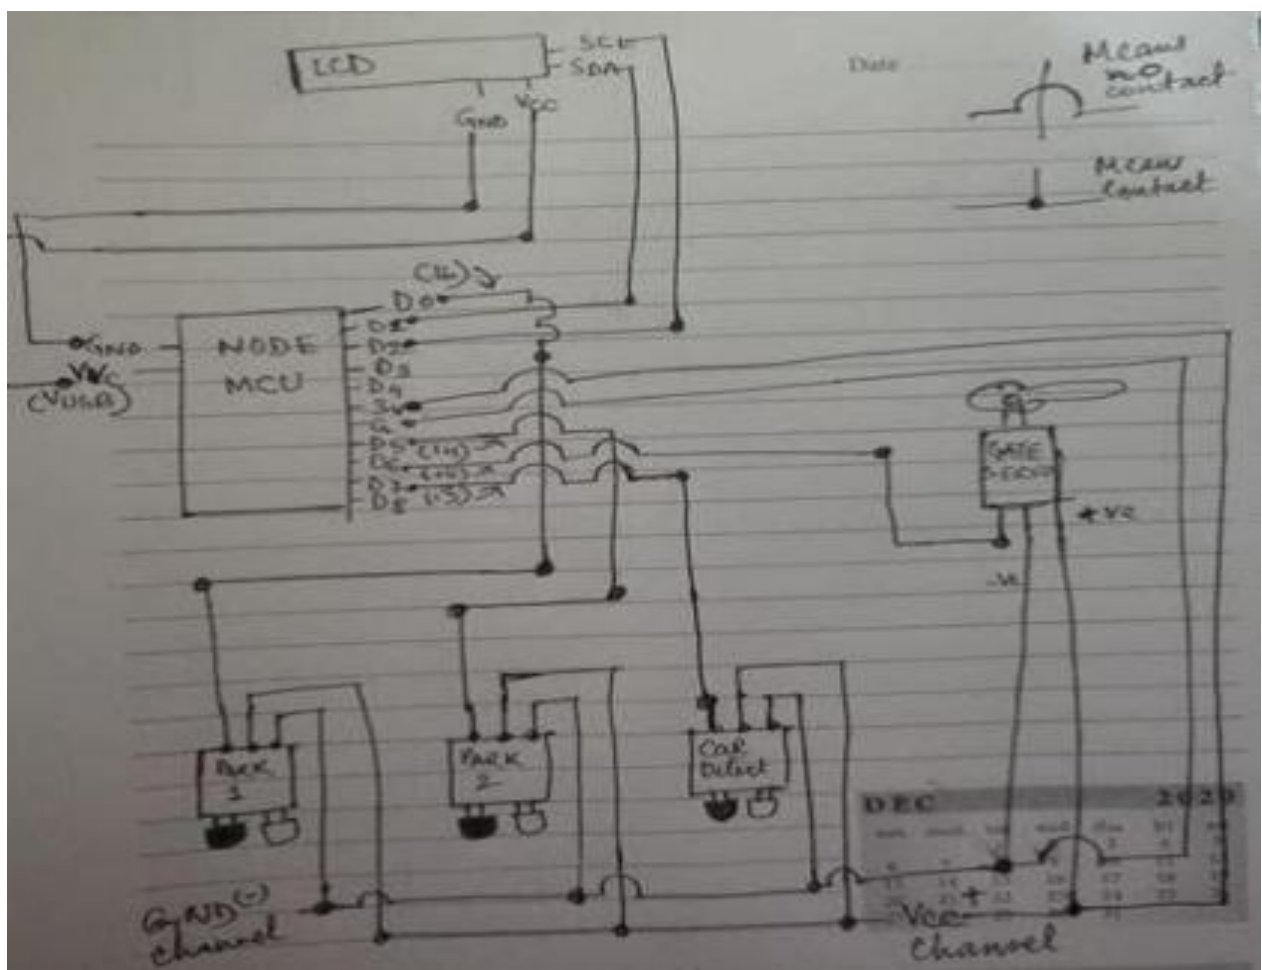 LCD
SCL
SDA
GND
VCC
Date
Means
no
contact
Means
contact
(16)
D0
D1
D2
D3
D4
3V
G
D5 (14)
D6 (12)
D7 (13)
D8
GND
(VUSB)
NODE
MCU
GATE
SERVO
+ve
-ve
PARK
1
PARK
2
Car
Detect
DEC 2020
GND (-)
Channel
VCC +
Channel